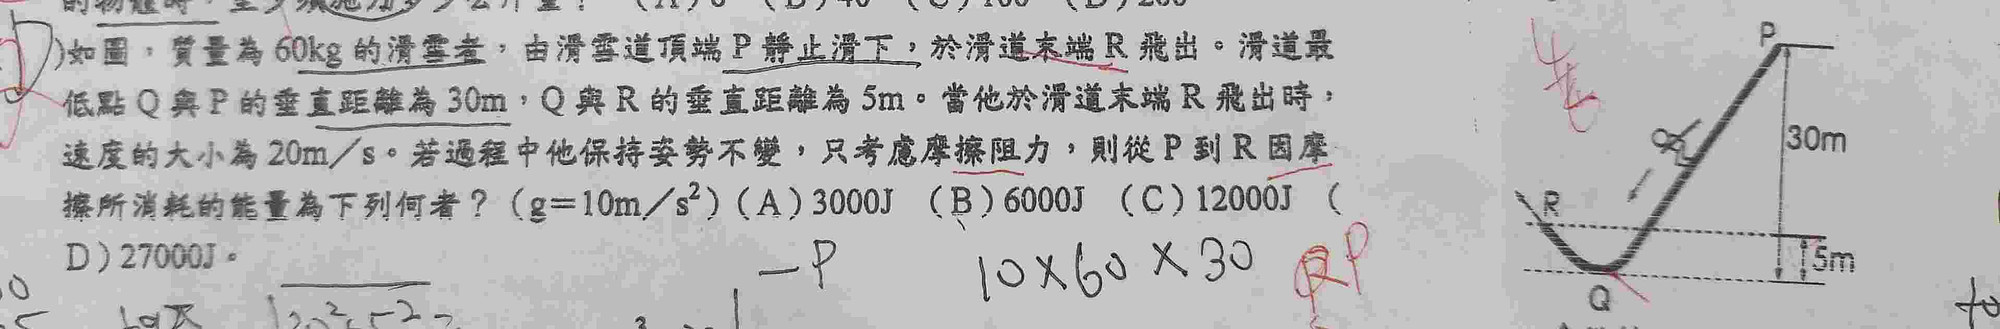 )如圖，質量為60kg的滑雪者，由滑雪道頂端P靜止滑下，於滑道末端R飛出。滑道最
低點Q與P的垂直距離為30m，Q與R的垂直距離為5m。當他於滑道末端R飛出時，
速度的大小為20m／s。若過程中他保持姿勢不變，只考慮摩擦阻力，則從P到R因摩
擦所消耗的能量為下列何者？（g＝10m／s²）（A）3000J （B）6000J （C）12000J （
D）27000J。
P
30m
R
5m
Q
－P
10×60×30
P